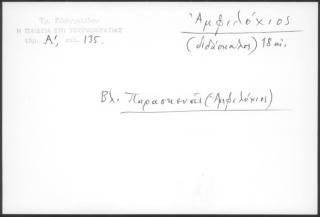 Τρ. Ευαγγελίδου
Η ΠΑΙΔΕΙΑ ΕΠΙ ΤΟΥΡΚΟΚΡΑΤΙΑΣ
τόμ. Α', σελ. 135.
Ἀμφιλόχιος
(διδάσκαλος) 18 αἰ.
Βλ. Παρασκευᾶς (-Ἀμφιλόχιος)